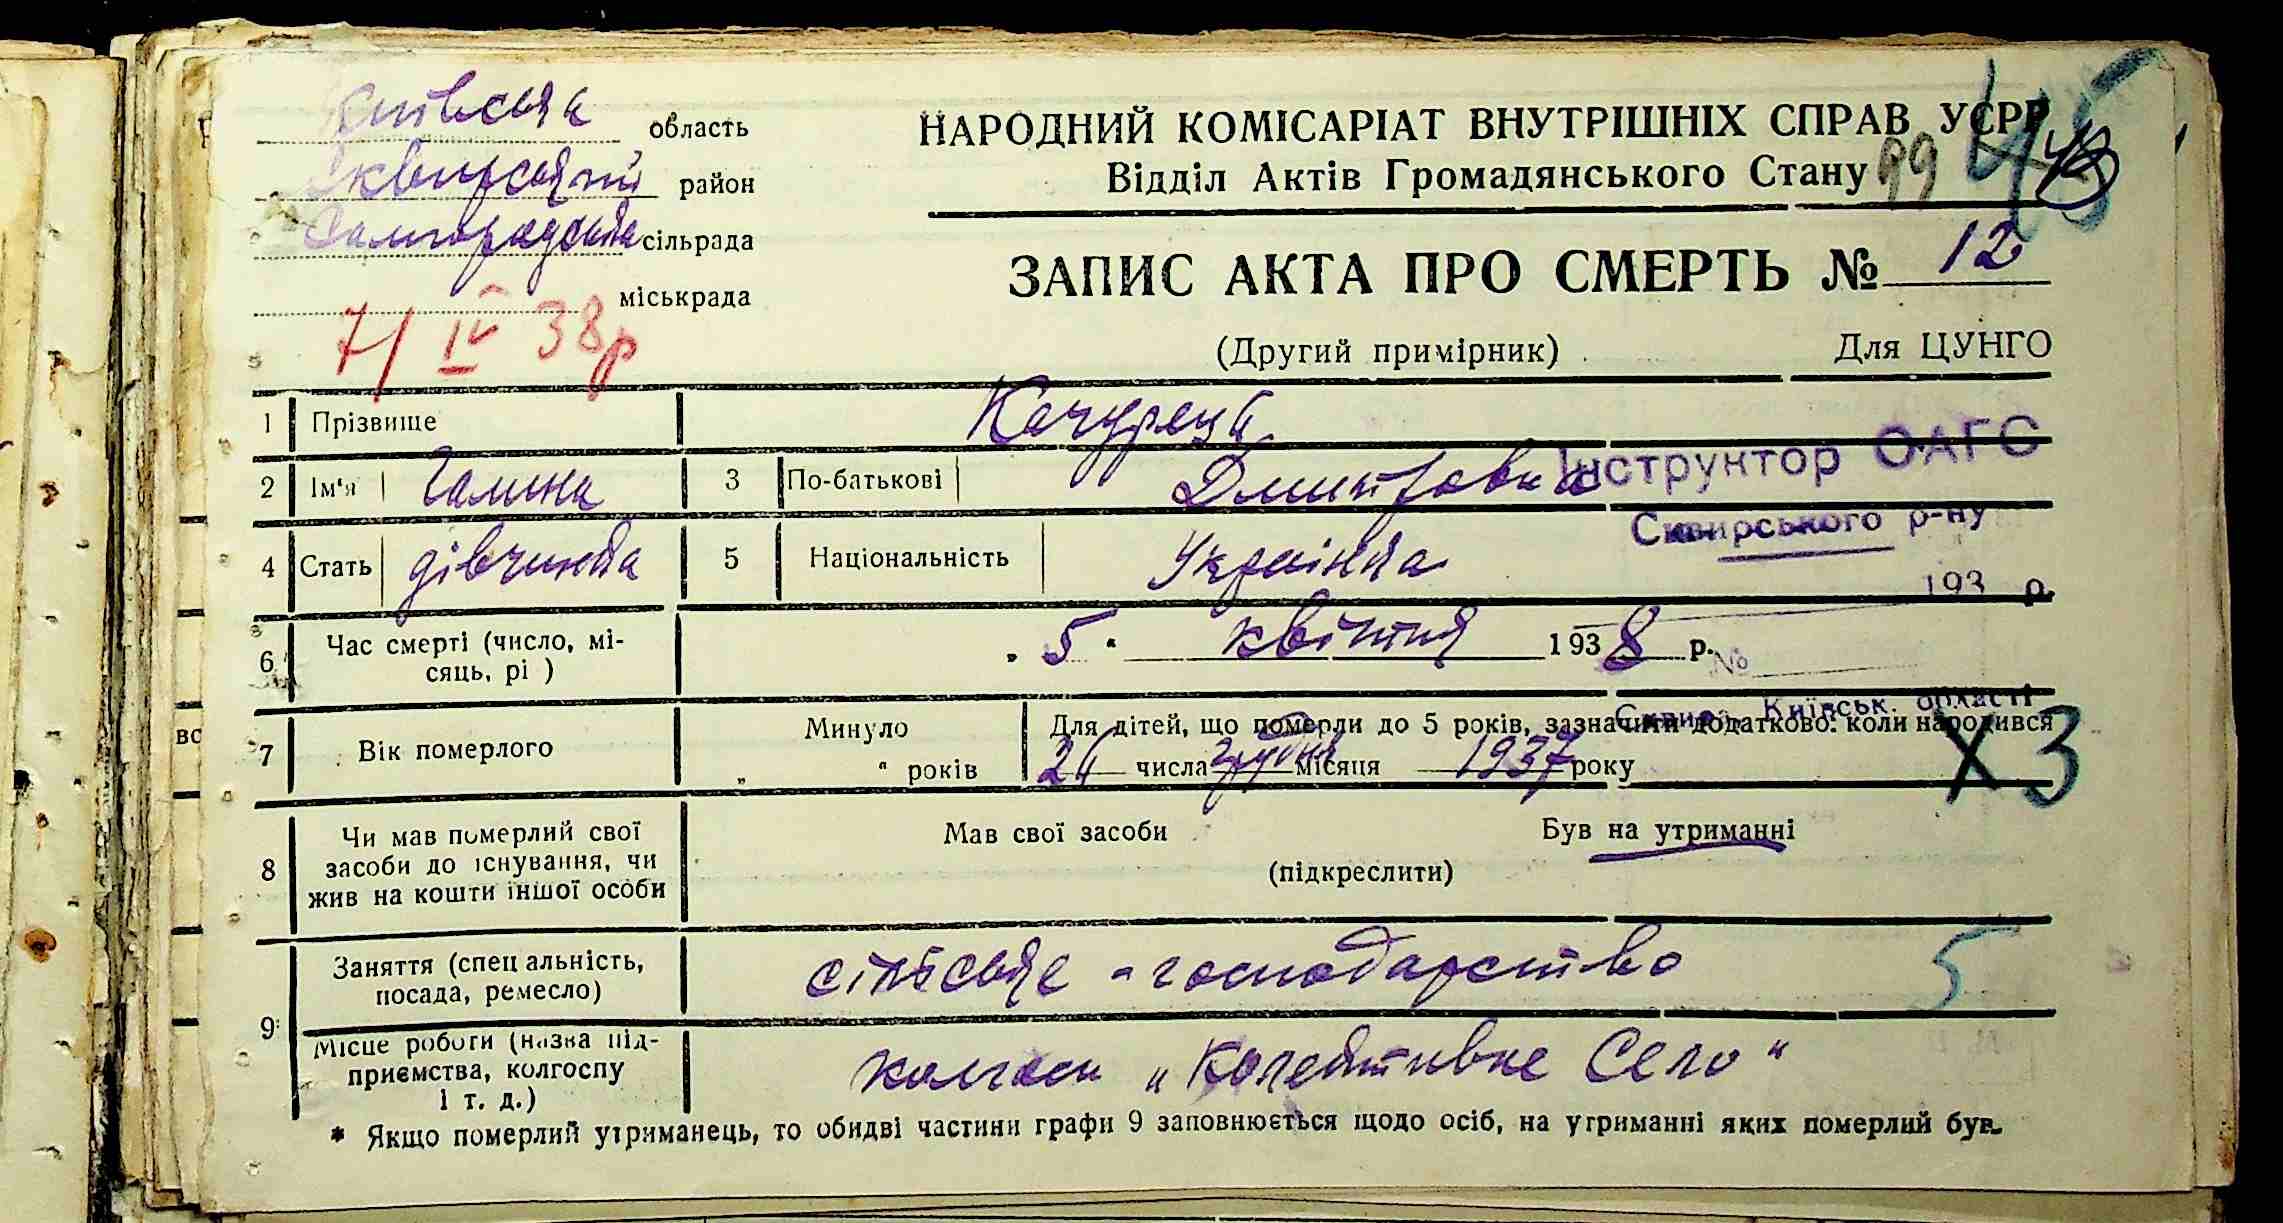 Київська область
Сквирський район
Самгородська сільрада
міськрада
7/IV 38р
НАРОДНИЙ КОМІСАРІАТ ВНУТРІШНІХ СПРАВ УСРР
Відділ Актів Громадянського Стану 99
ЗАПИС АКТА ПРО СМЕРТЬ № 12
(Другий примірник) Для ЦУНГО
1 Прізвище Качурец
2 Ім'я Галина 3 По-батькові Дмитровна
Інструктор ОАГС
Сквирського р-ну
4 Стать дівчинка 5 Національність Українка
193 р.
6 Час смерті (число, мі-
сяць, рі ) „5" квітня 1938 р.
№
Сквира, Київськ. області
7 Вік померлого Минуло „ " років
Для дітей, що померли до 5 років, зазначити додатково: коли народився
26 числа грудня місяця 1937 року
Х 3
8 Чи мав померлий свої
засоби до існування, чи
жив на кошти іншої особи
Мав свої засоби Був на утриманні
(підкреслити)
9 Заняття (спец альність,
посада, ремесло) сільське-господарство 5
Місце роботи (назва під-
приємства, колгоспу
і т. д.) колгосп „Колективне Село"
* Якщо померлий утриманець, то обидві частини графи 9 заповнюється щодо осіб, на утриманні яких померлий був.